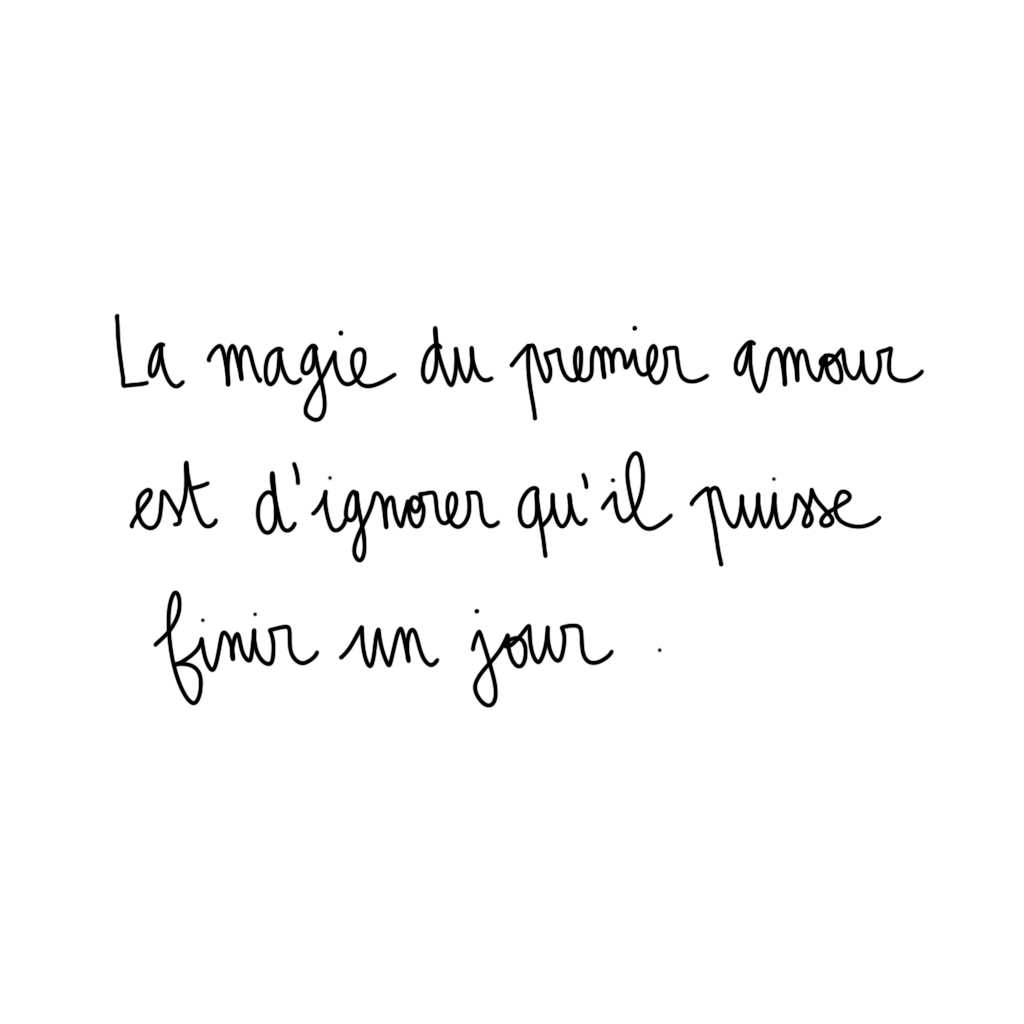 La magie du premier amour
est d'ignorer qu'il puisse
finir un jour .